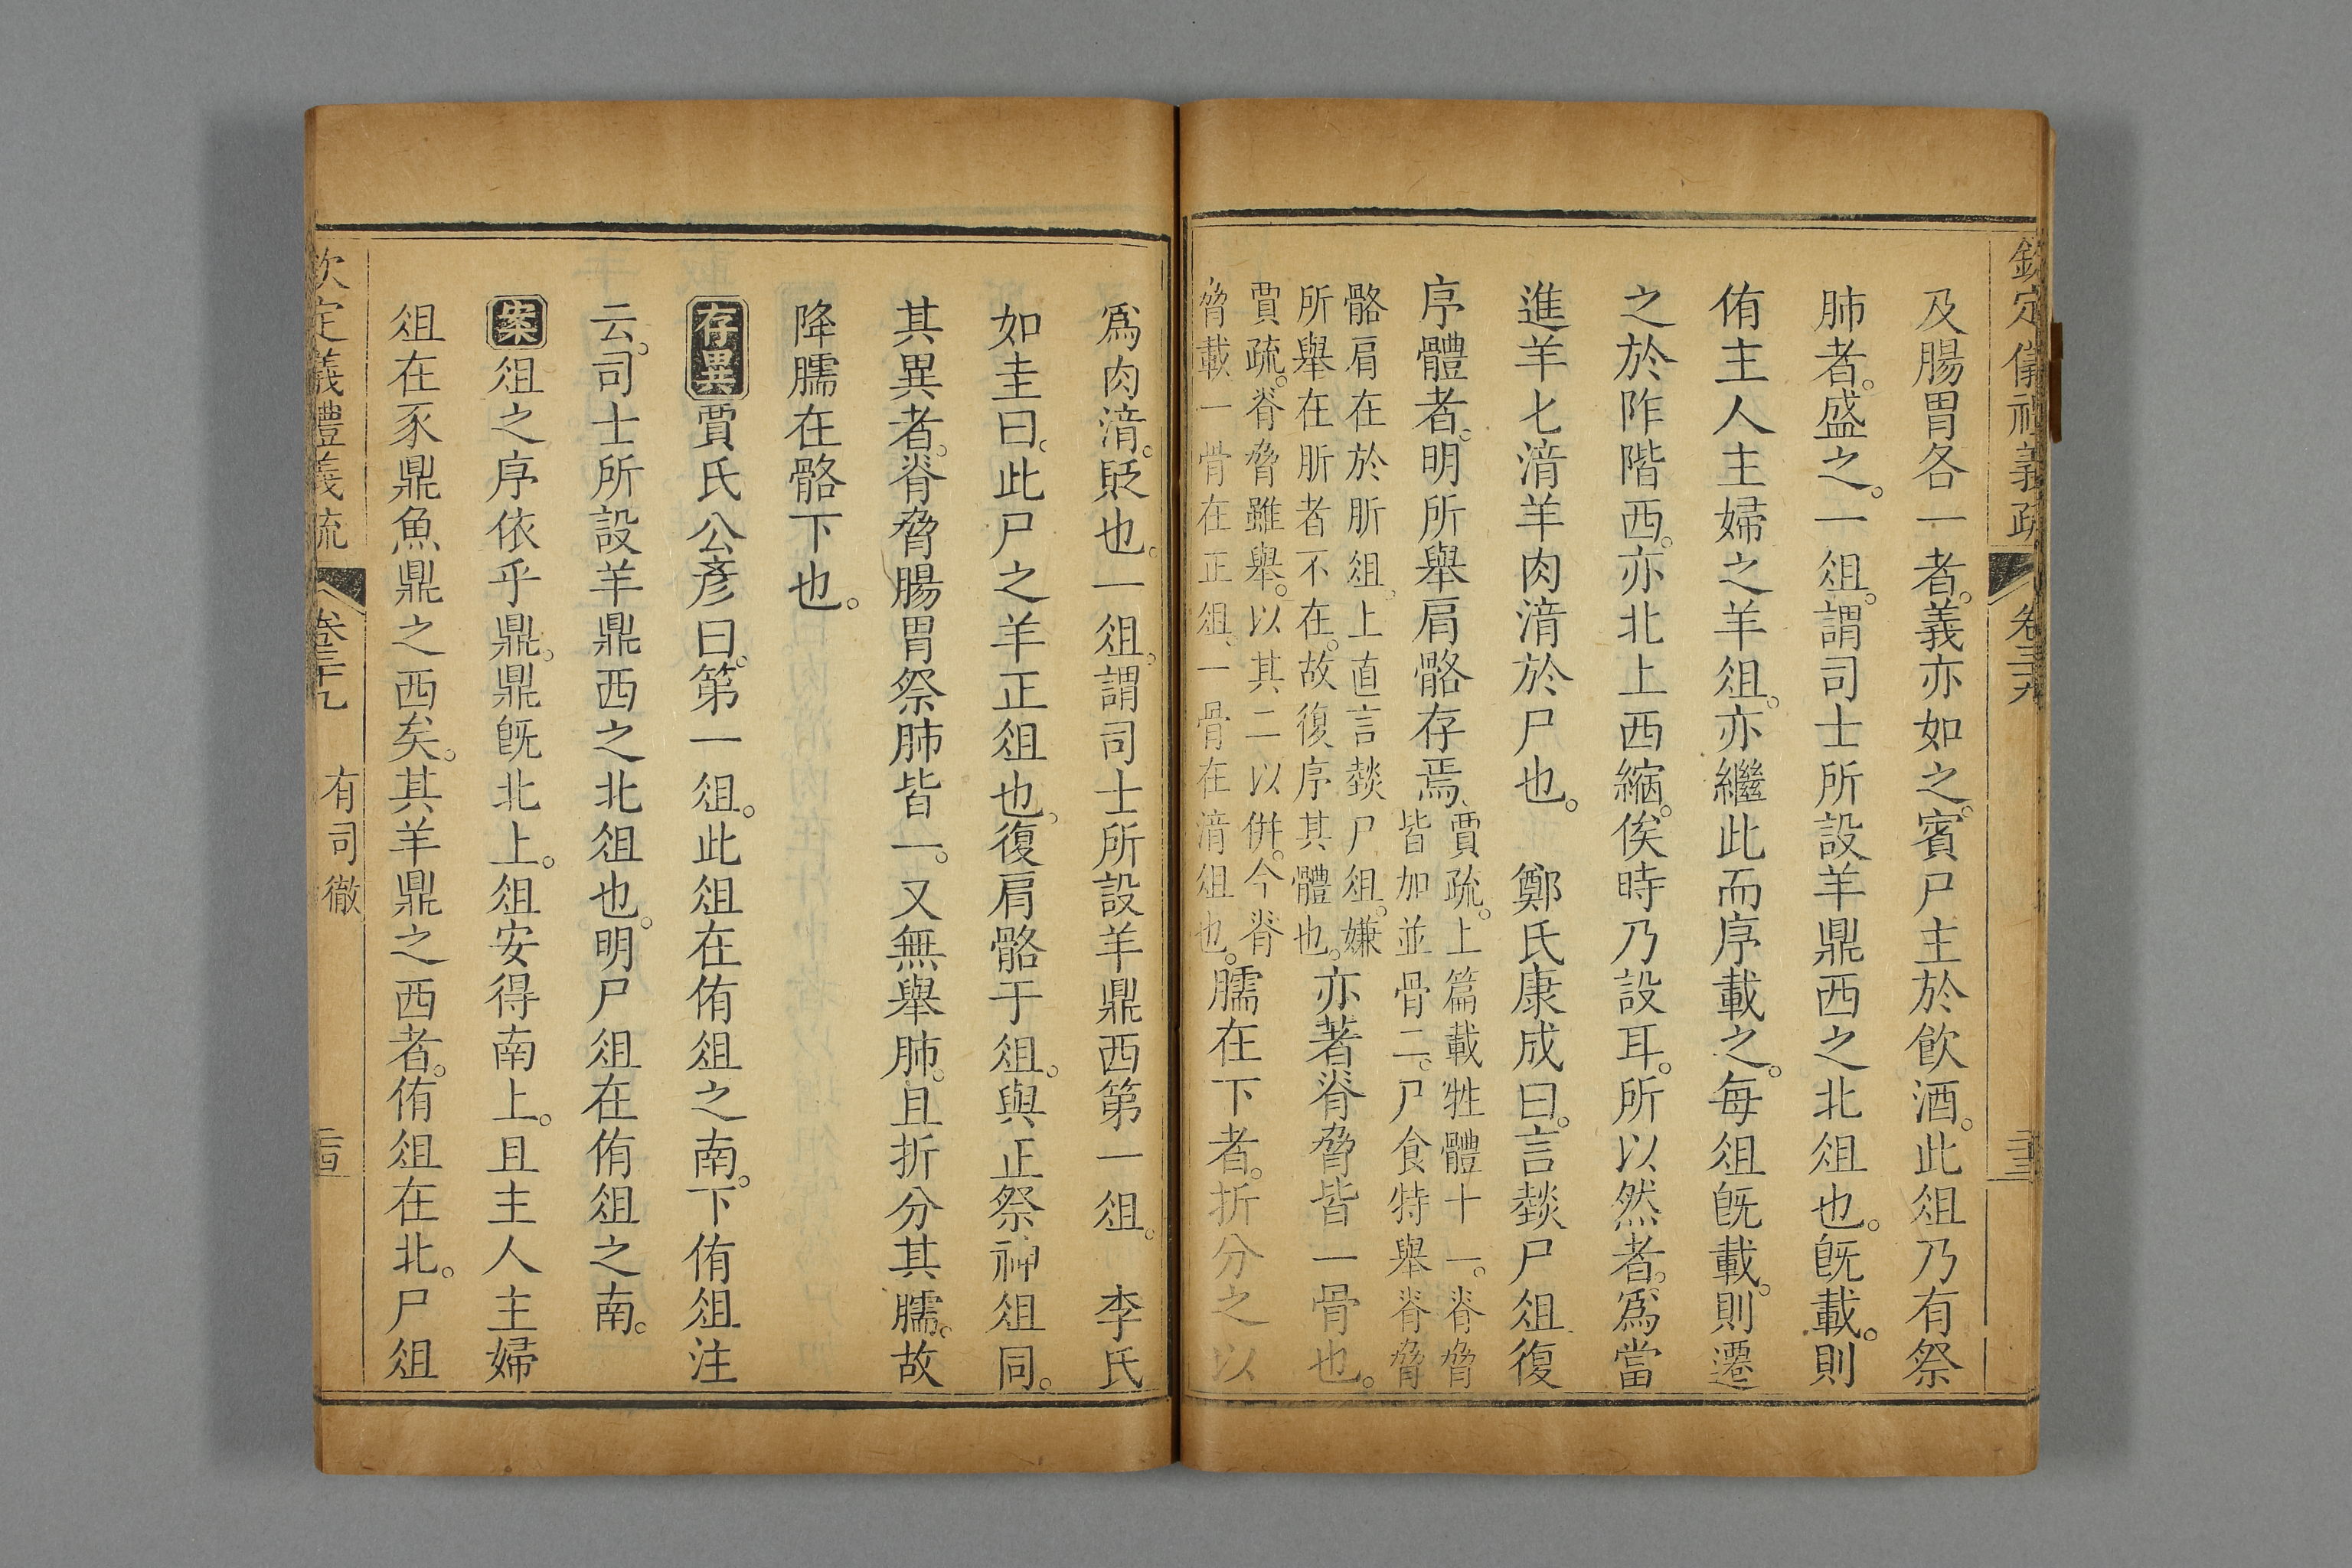 欽定儀禮義疏 卷三十九
及腸胃各一者。義亦如之。賓尸主於飲酒。此俎乃有祭
肺者。盛之。一俎。謂司士所設羊鼎西之北俎也。旣載。則
侑主人主婦之羊俎。亦繼此而序載之。每俎旣載。則遷
之於阼階西。亦北上西縮。俟時乃設耳。所以然者。爲當
進羊匕湇羊肉湇於尸也。 鄭氏康成曰。言燅尸俎復
序體者。明所舉肩骼存焉、賈疏。上篇載牲體十一。脊脅皆加並骨二。尸食特舉脊脅
骼肩在於肵俎。上直言燅尸俎。嫌所舉在肵者不在。故復序其體也。亦著脊脅皆一骨也。
賈疏。脊脅雖舉。以其二以併。今脊脅載一骨在正俎、一骨在湇俎也。臑在下者。折分之以
爲肉湇。貶也。一俎。謂司士所設羊鼎西第一俎。 李氏
如圭曰。此尸之羊正俎也。復肩骼于俎。與正祭神俎同。
其異者。脊脅腸胃祭肺皆一。又無舉肺。且折分其臑。故
降臑在骼下也。
存異賈氏公彥曰。第一俎。此俎在侑俎之南。下侑俎注
云。司士所設羊鼎西之北俎也。明尸俎在侑俎之南。
案俎之序依乎鼎。鼎旣北上。俎安得南上。且主人主婦
俎在豕鼎魚鼎之西矣。其羊鼎之西者。侑俎在北。尸俎
欽定義禮義疏 卷三十九 有司徹